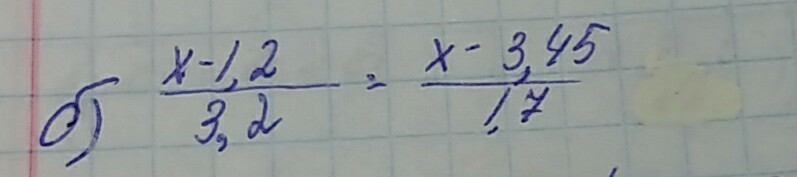 б) (x-1,2)/(3,2) = (x-3,45)/(1,7)